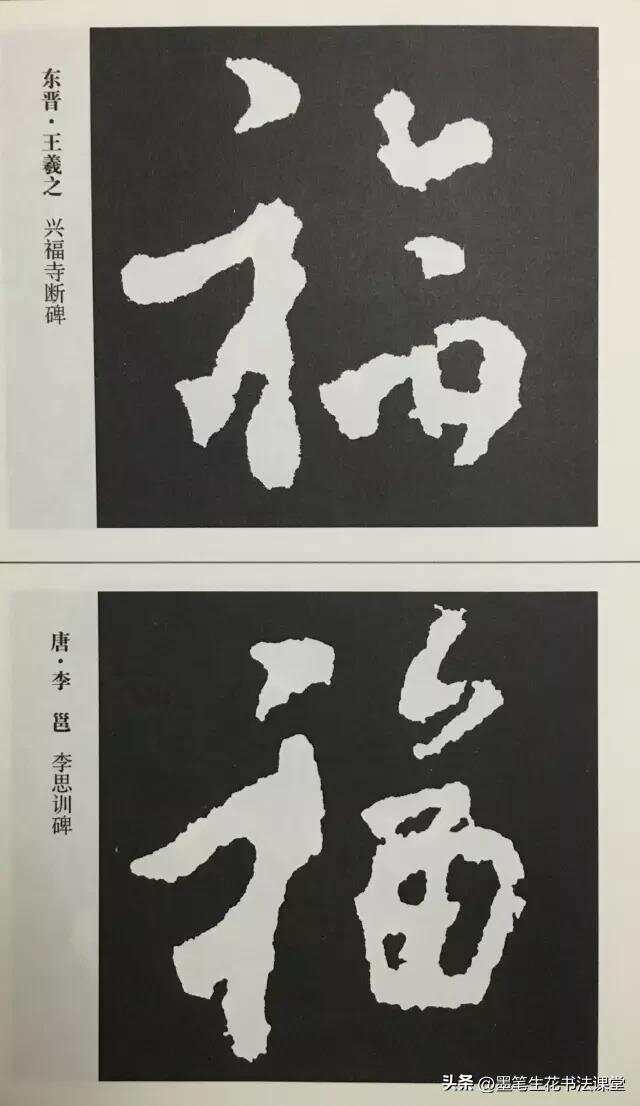 东晋·王羲之 兴福寺断碑
福
唐·李邕 李思训碑
福
头条 @墨笔生花书法课堂